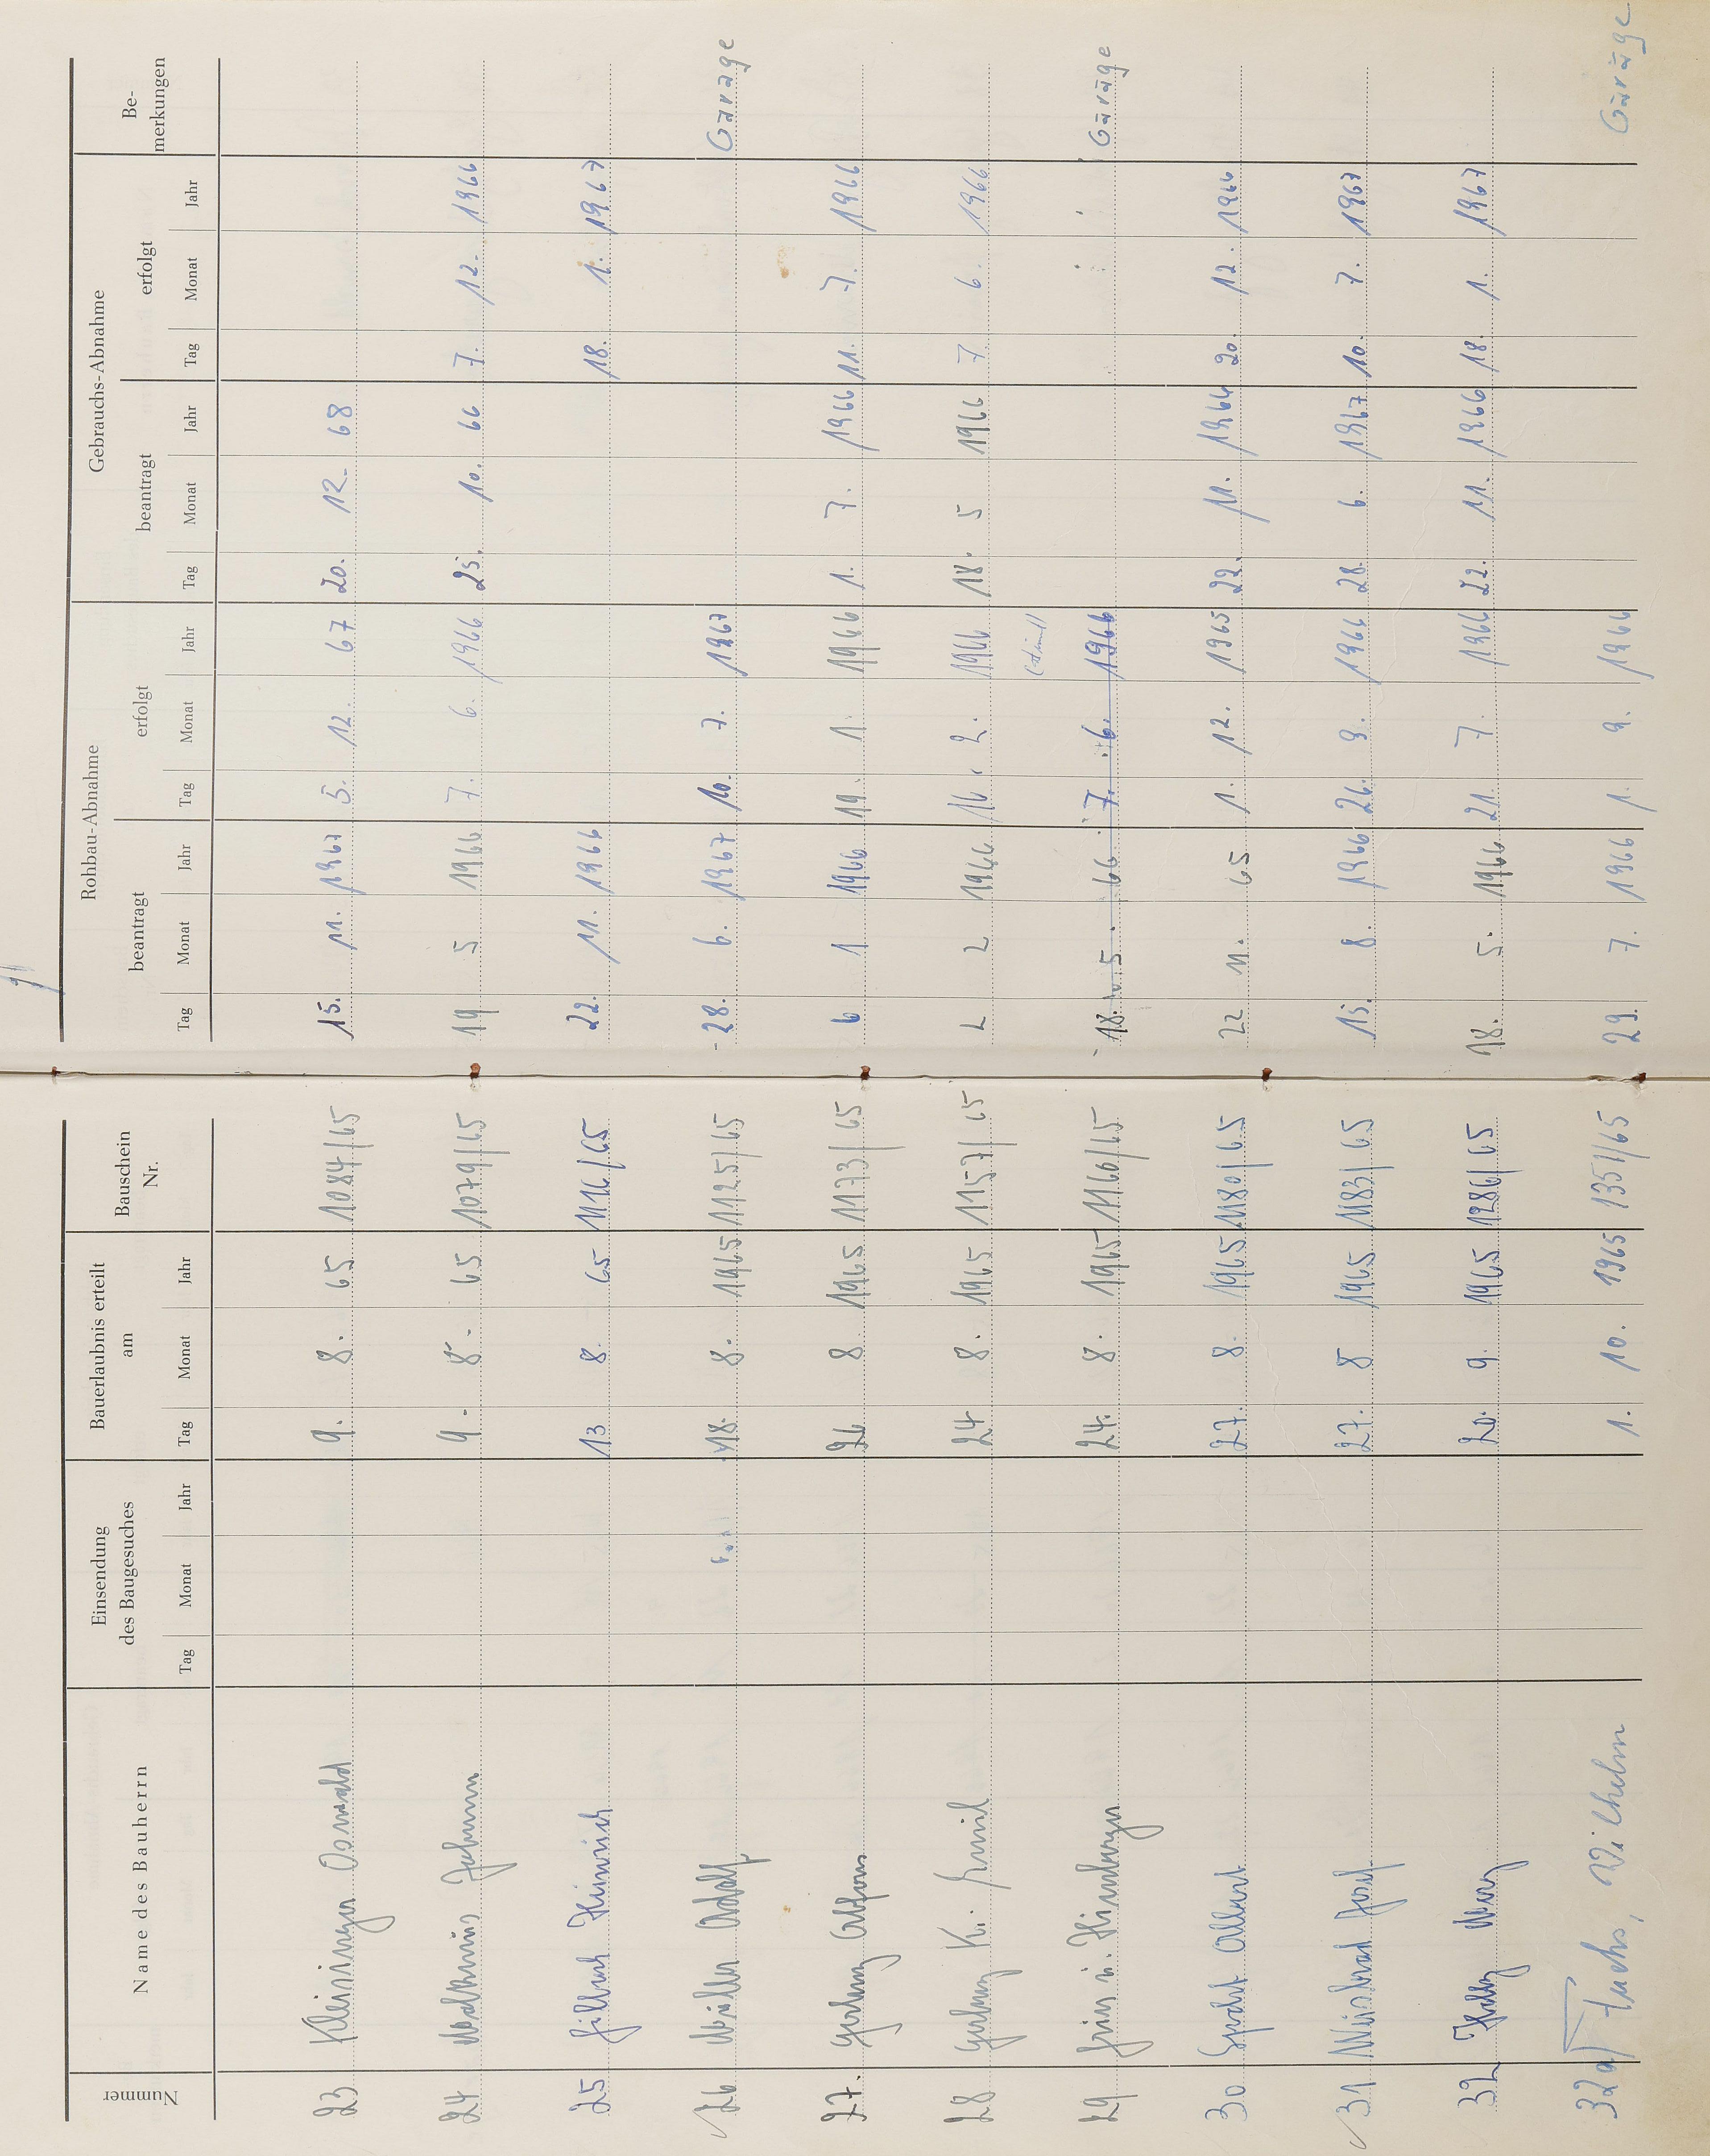 Nummer Name des Bauherrn Einsendung des Baugesuches Bauerlaubnis erteilt am Bauschein Nr. Rohbau-Abnahme Gebrauchs-Abnahme Be-merkungen
beantragt erfolgt beantragt erfolgt
Tag Monat Jahr Tag Monat Jahr Tag Monat Jahr Tag Monat Jahr Tag Monat Jahr Tag Monat Jahr
23 Oswald 9. 8. 65 1084/65 15. 11. 1967 5. 12. 67 20. 12. 68
24 9. 8. 65 1079/65 19 5 1966 7. 6. 1966 25. 10. 66 7. 12. 1966
25 Heinrich 13 8. 65 1116/65 22. 11. 1966 18. 1. 1967
26 Müller Adolf 18. 8. 1965 1125/65 28. 6. 1967 10. 7. 1967 Garage
27. Alfons 26 8. 1965 1173/65 6 1 1966 19. 1. 1966 1. 7. 1966 11. 7. 1966
28 24 8. 1965 1157/65 2 2 1966 16. 2. 1966 18. 5 1966 7 6. 1966
29 24. 8. 1965 1166/65 18. 5. 66 7. 6. 1966 Garage
30 Specht Albert 27. 8. 1965 1180/65 22 11. 65 1. 12. 1965 22. 11. 1966 20. 12. 1966
31 Josef 27. 8 1965 1183/65 15. 8. 1966 26. 9. 1966 28. 6. 1967 10. 7. 1967
32 20. 9. 1965 1286/65 18. 5. 1966 21. 7. 1966 22. 11. 1966 18. 1. 1967
32a Fuchs, Wilhelm 1. 10. 1965 1351/65 29. 7. 1966 1. 9. 1966 Garage